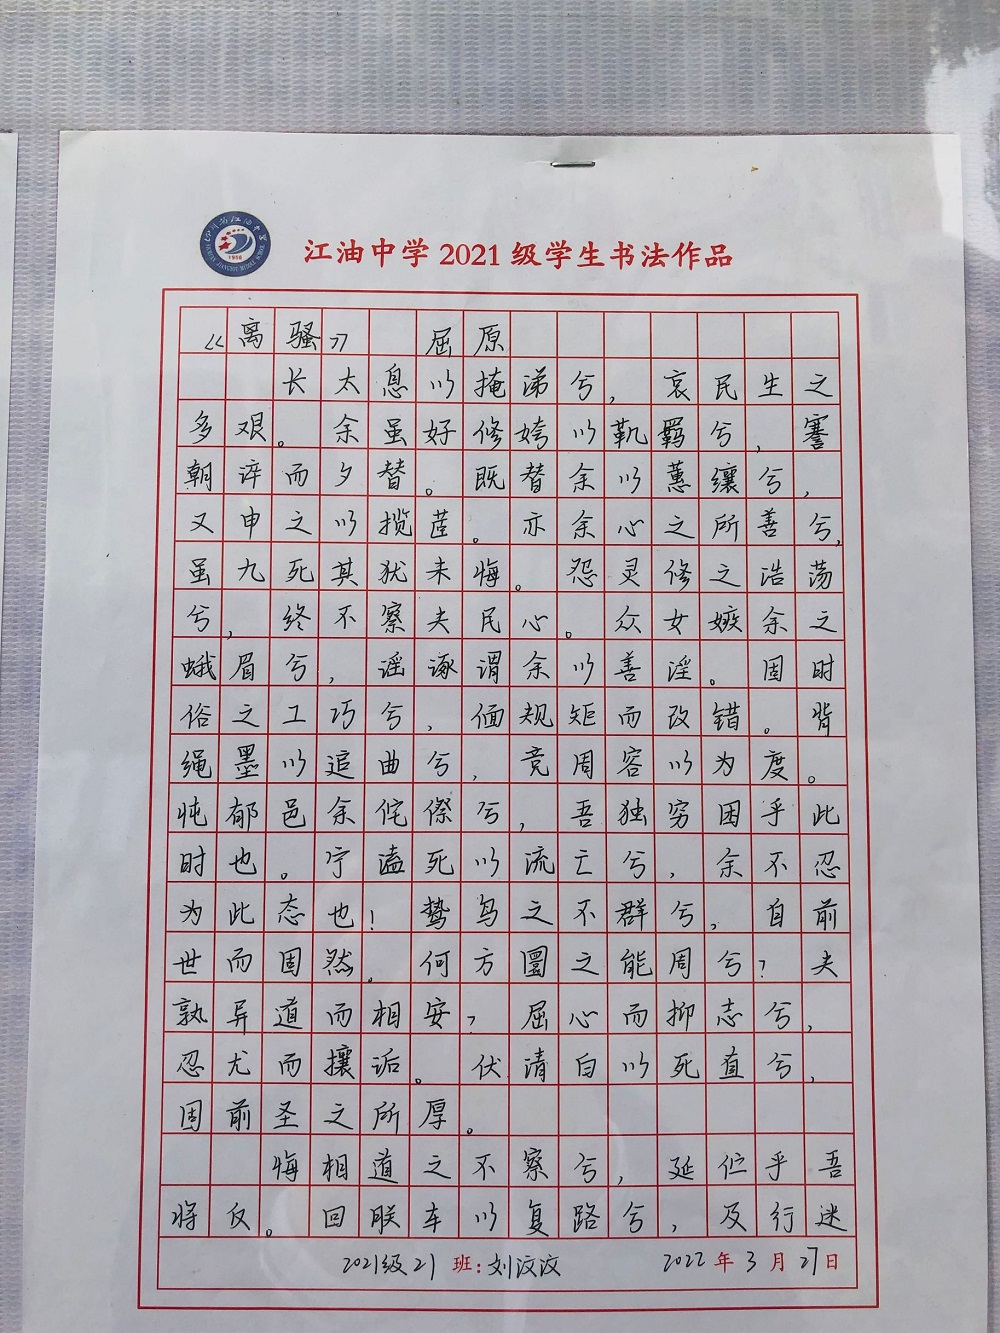 江油中学 2021 级学生书法作品
1916
《离骚》 屈原
长太息以掩涕兮，哀民生之
多艰。余虽好修姱以鞿羁兮，謇
朝谇而夕替。既替余以蕙纕兮，
又申之以揽茝。亦余心之所善兮，
虽九死其犹未悔。怨灵修之浩荡
兮，终不察夫民心。众女嫉余之
蛾眉兮，谣诼谓余以善淫。固时
俗之工巧兮，偭规矩而改错。背
绳墨以追曲兮，竞周容以为度。
忳郁邑余侘傺兮，吾独穷困乎此
时也。宁溘死以流亡兮，余不忍
为此态也！鸷鸟之不群兮，自前
世而固然。何方圜之能周兮？夫
孰异道而相安？屈心而抑志兮，
忍尤而攘诟。伏清白以死直兮，
固前圣之所厚。
悔相道之不察兮，延伫乎吾
将反。回朕车以复路兮，及行迷
2021级21 班：刘汶汶 2022 年 3 月 27 日